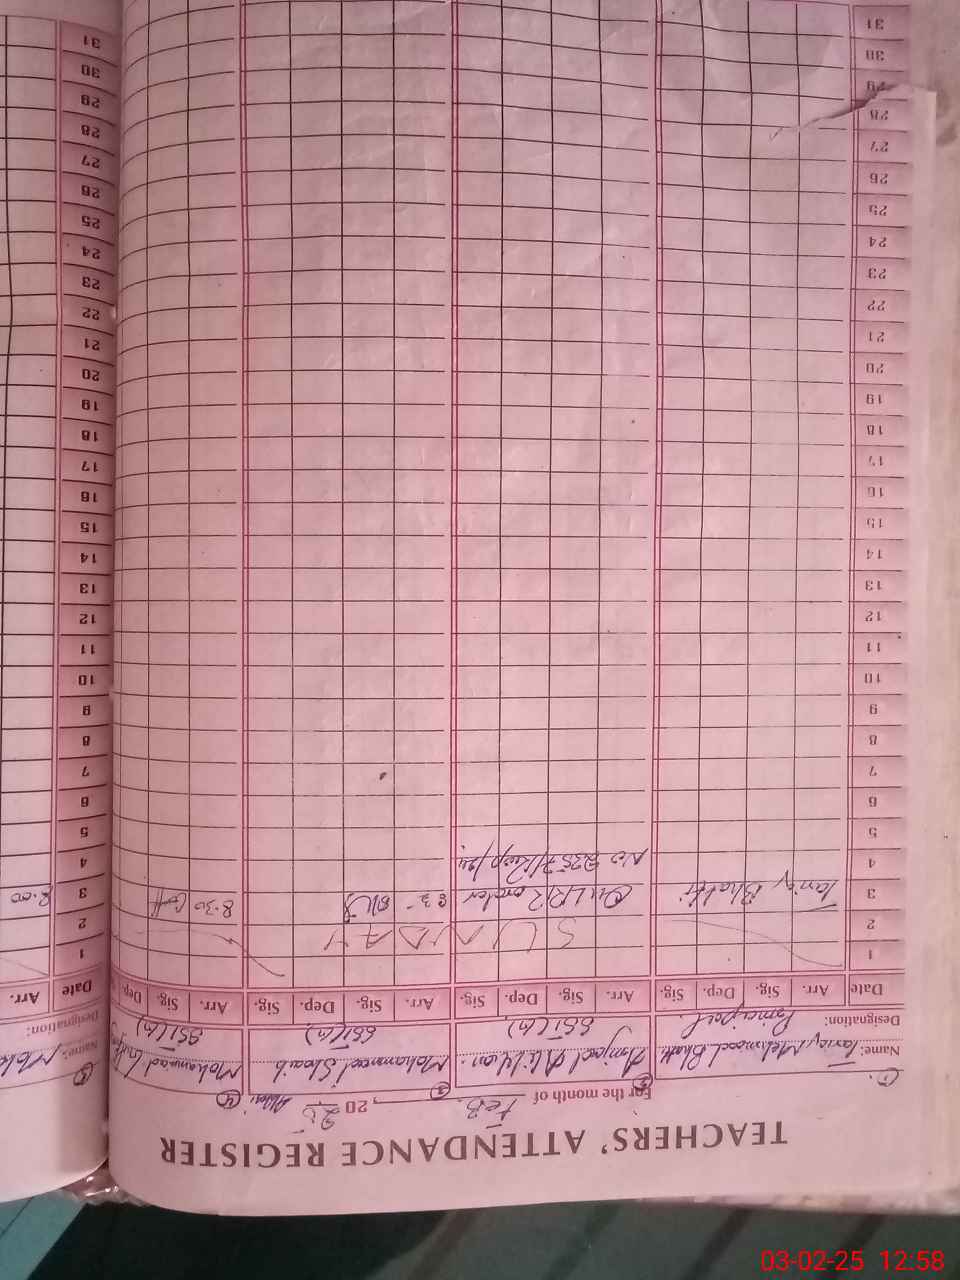 TEACHERS' ATTENDANCE REGISTER
For the month of FEB. , 20 25
① ② ③ ④
Name: Tariq Mehmood Bhatti Amjad Ali Khan. Mohammad Shoaib Mohammad
Designation: Principal SST(M) SST(M) SST(M)
Date Arr. Sig. Dep. Sig. Arr. Sig. Dep. Sig. Arr. Sig. Dep. Sig. Arr. Sig. Dep.
1
2 SUNDAY
3 Tariq Bhatti order 8.30
4 No
5
6
7
8
9
10
11
12
13
14
15
16
17
18
19
20
21
22
23
24
25
26
27
28
29
30
31
⑤
Name:
Designation:
Date Arr.
1
2
3 8.00
4
5
6
7
8
9
10
11
12
13
14
15
16
17
18
19
20
21
22
23
24
25
26
27
28
29
30
31
03-02-25 12:58